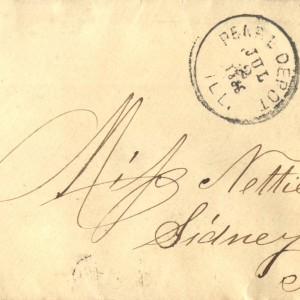 PEARL DEPOT
JUL
2
ILL.
Miss Nettie
Sidney